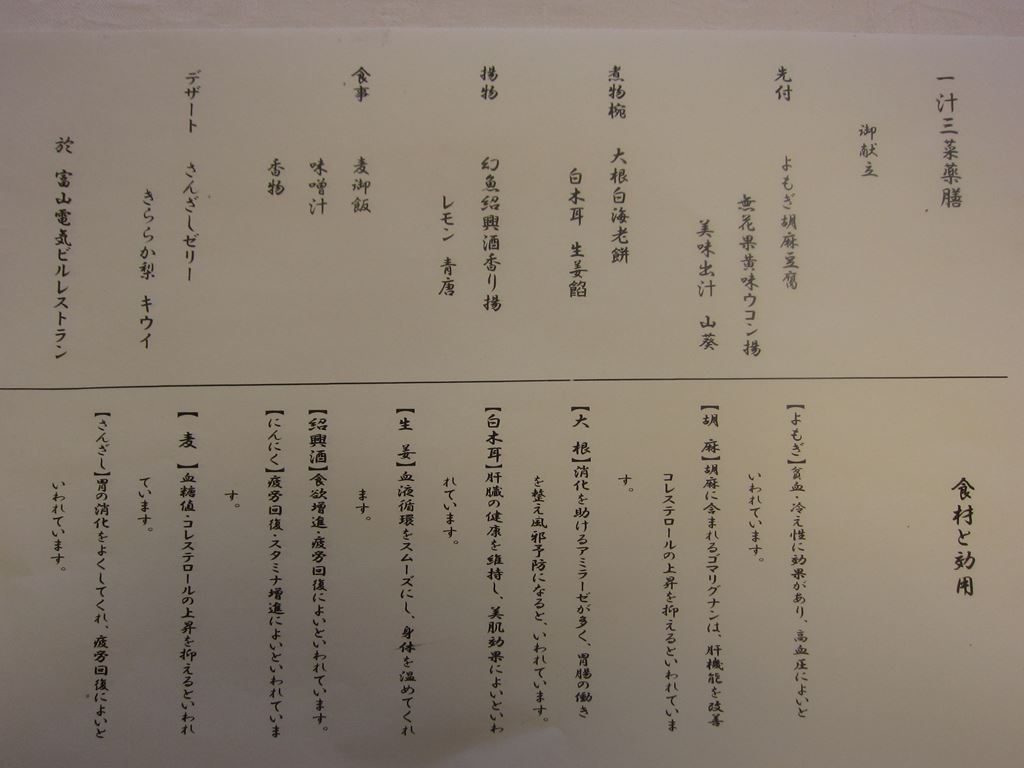 一汁三菜薬膳
御献立
先付 よもぎ胡麻豆腐
無花果黄味ウコン揚
美味出汁 山葵
煮物椀 大根白海老餅
白木耳 生姜餡
揚物 幻魚紹興酒香り揚
レモン 青唐
食事 麦御飯
味噌汁
香物
デザート さんざしゼリー
きららか梨 キウイ
於 富山電気ビルレストラン
食材と効用
【よもぎ】貧血・冷え性に効果があり、高血圧によいと
いわれています。
【胡 麻】胡麻に含まれるゴマリグナンは、肝機能を改善
コレステロールの上昇を抑えるといわれていま
す。
【大 根】消化を助けるアミラーゼが多く、胃腸の働き
を整え風邪予防になると、いわれています。
【白木耳】肝臓の健康を維持し、美肌効果によいといわ
れています。
【生 姜】血液循環をスムーズにし、身体を温めてくれ
ます。
【紹興酒】食欲増進・疲労回復によいといわれています。
【にんにく】疲労回復・スタミナ増進によいといわれていま
す。
【麦】血糖値・コレステロールの上昇を抑えるといわれ
ています。
【さんざし】胃の消化をよくしてくれ、疲労回復によいと
いわれています。